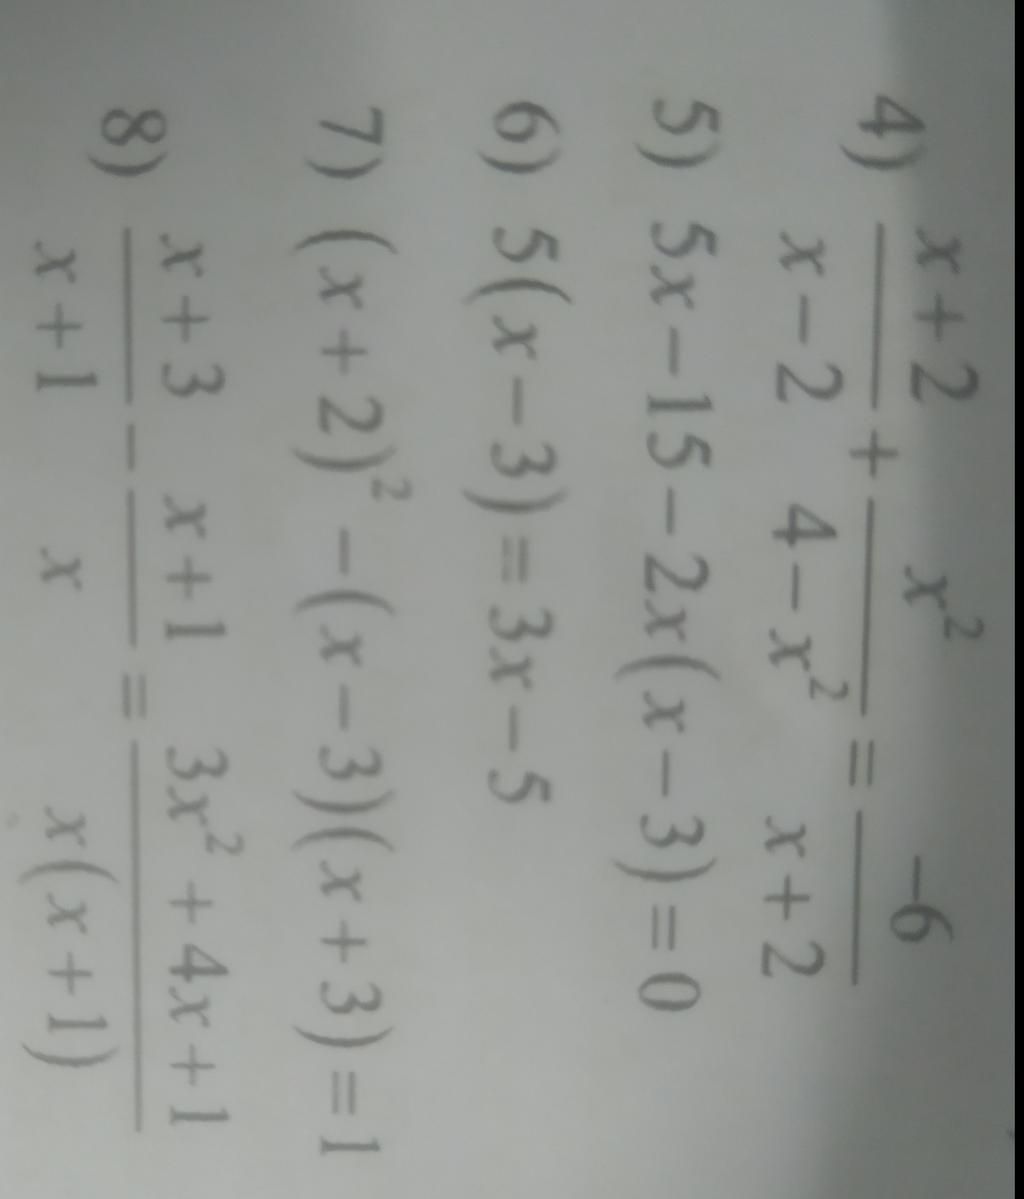 4) \frac{x+2}{x-2} + \frac{x^2}{4-x^2} = \frac{-6}{x+2}
5) 5x-15-2x(x-3)=0
6) 5(x-3)=3x-5
7) (x+2)^2-(x-3)(x+3)=1
8) \frac{x+3}{x+1} - \frac{x+1}{x} = \frac{3x^2+4x+1}{x(x+1)}